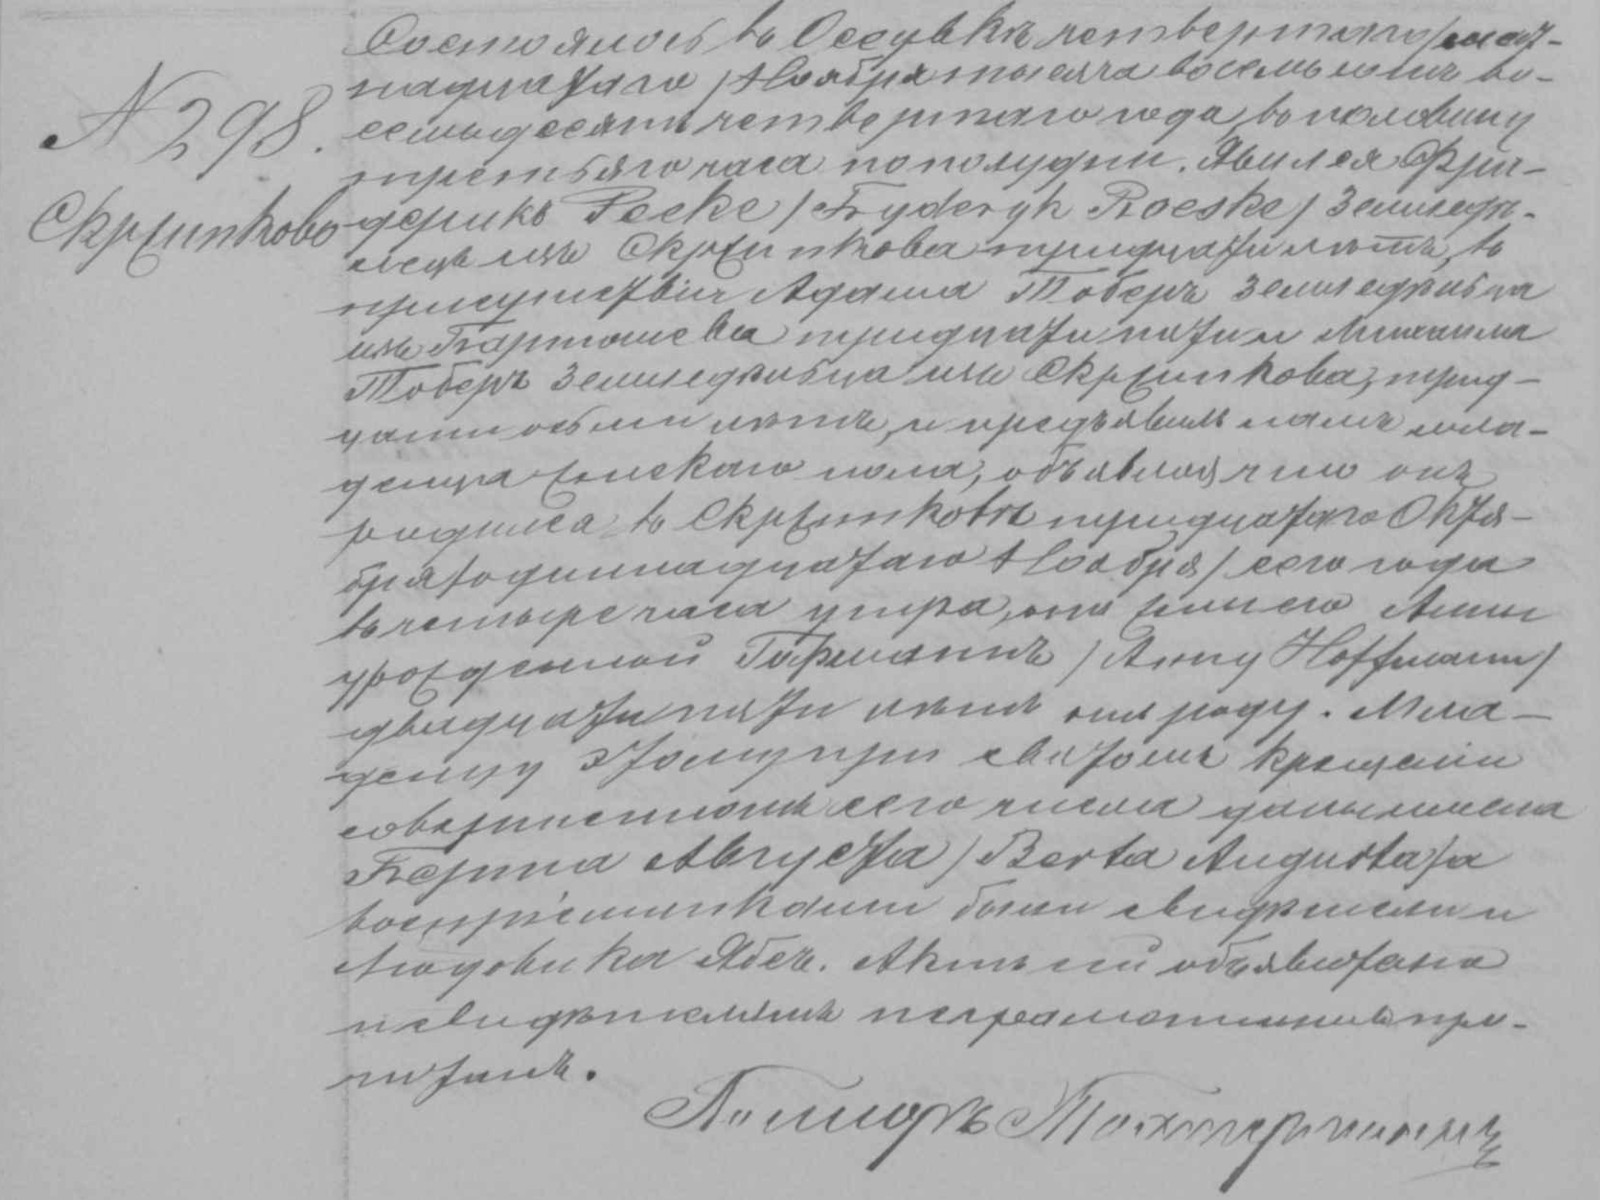 № 298.
Скржинково
Состоялось въ Оссувкѣ четвертаго /шест-
надцатаго/ Ноября тысяча восемьсотъ во-
семьдесятъ четвертаго года, въ половину
третьяго часа пополудни. Явился Фри-
дерикъ Реске /Fryderyk Roeske/ земледѣ-
лецъ изъ Скржинкова тридцати лѣтъ, въ
присутствіи Адама Тобера земледѣльца
изъ Бартошева тридцати пяти и Михаила
Тоберъ земледѣльца изъ Скржинкова, трид-
цати осьми лѣтъ, и предъявилъ намъ мла-
денца женскаго пола, объявляя что онъ
родился въ Скржинковѣ тридцатаго Октя-
бря /одиннадцатаго Ноября/ сего года
въ четыре часа утра, отъ жены его Анны
урожденной Гофманнъ /Anny Hoffmann/
двадцати пяти лѣтъ отъ роду. Мла-
денцу этому при святомъ крещеніи
совершенномъ сего числа даны имена
Берта Августа /Berta Augusta/ а
воспріемниками были свидѣтели и
Людовика Ябсъ. Актъ сей объявляющему
и свидѣтелямъ неграмотнымъ про-
читанъ.
Пасторъ